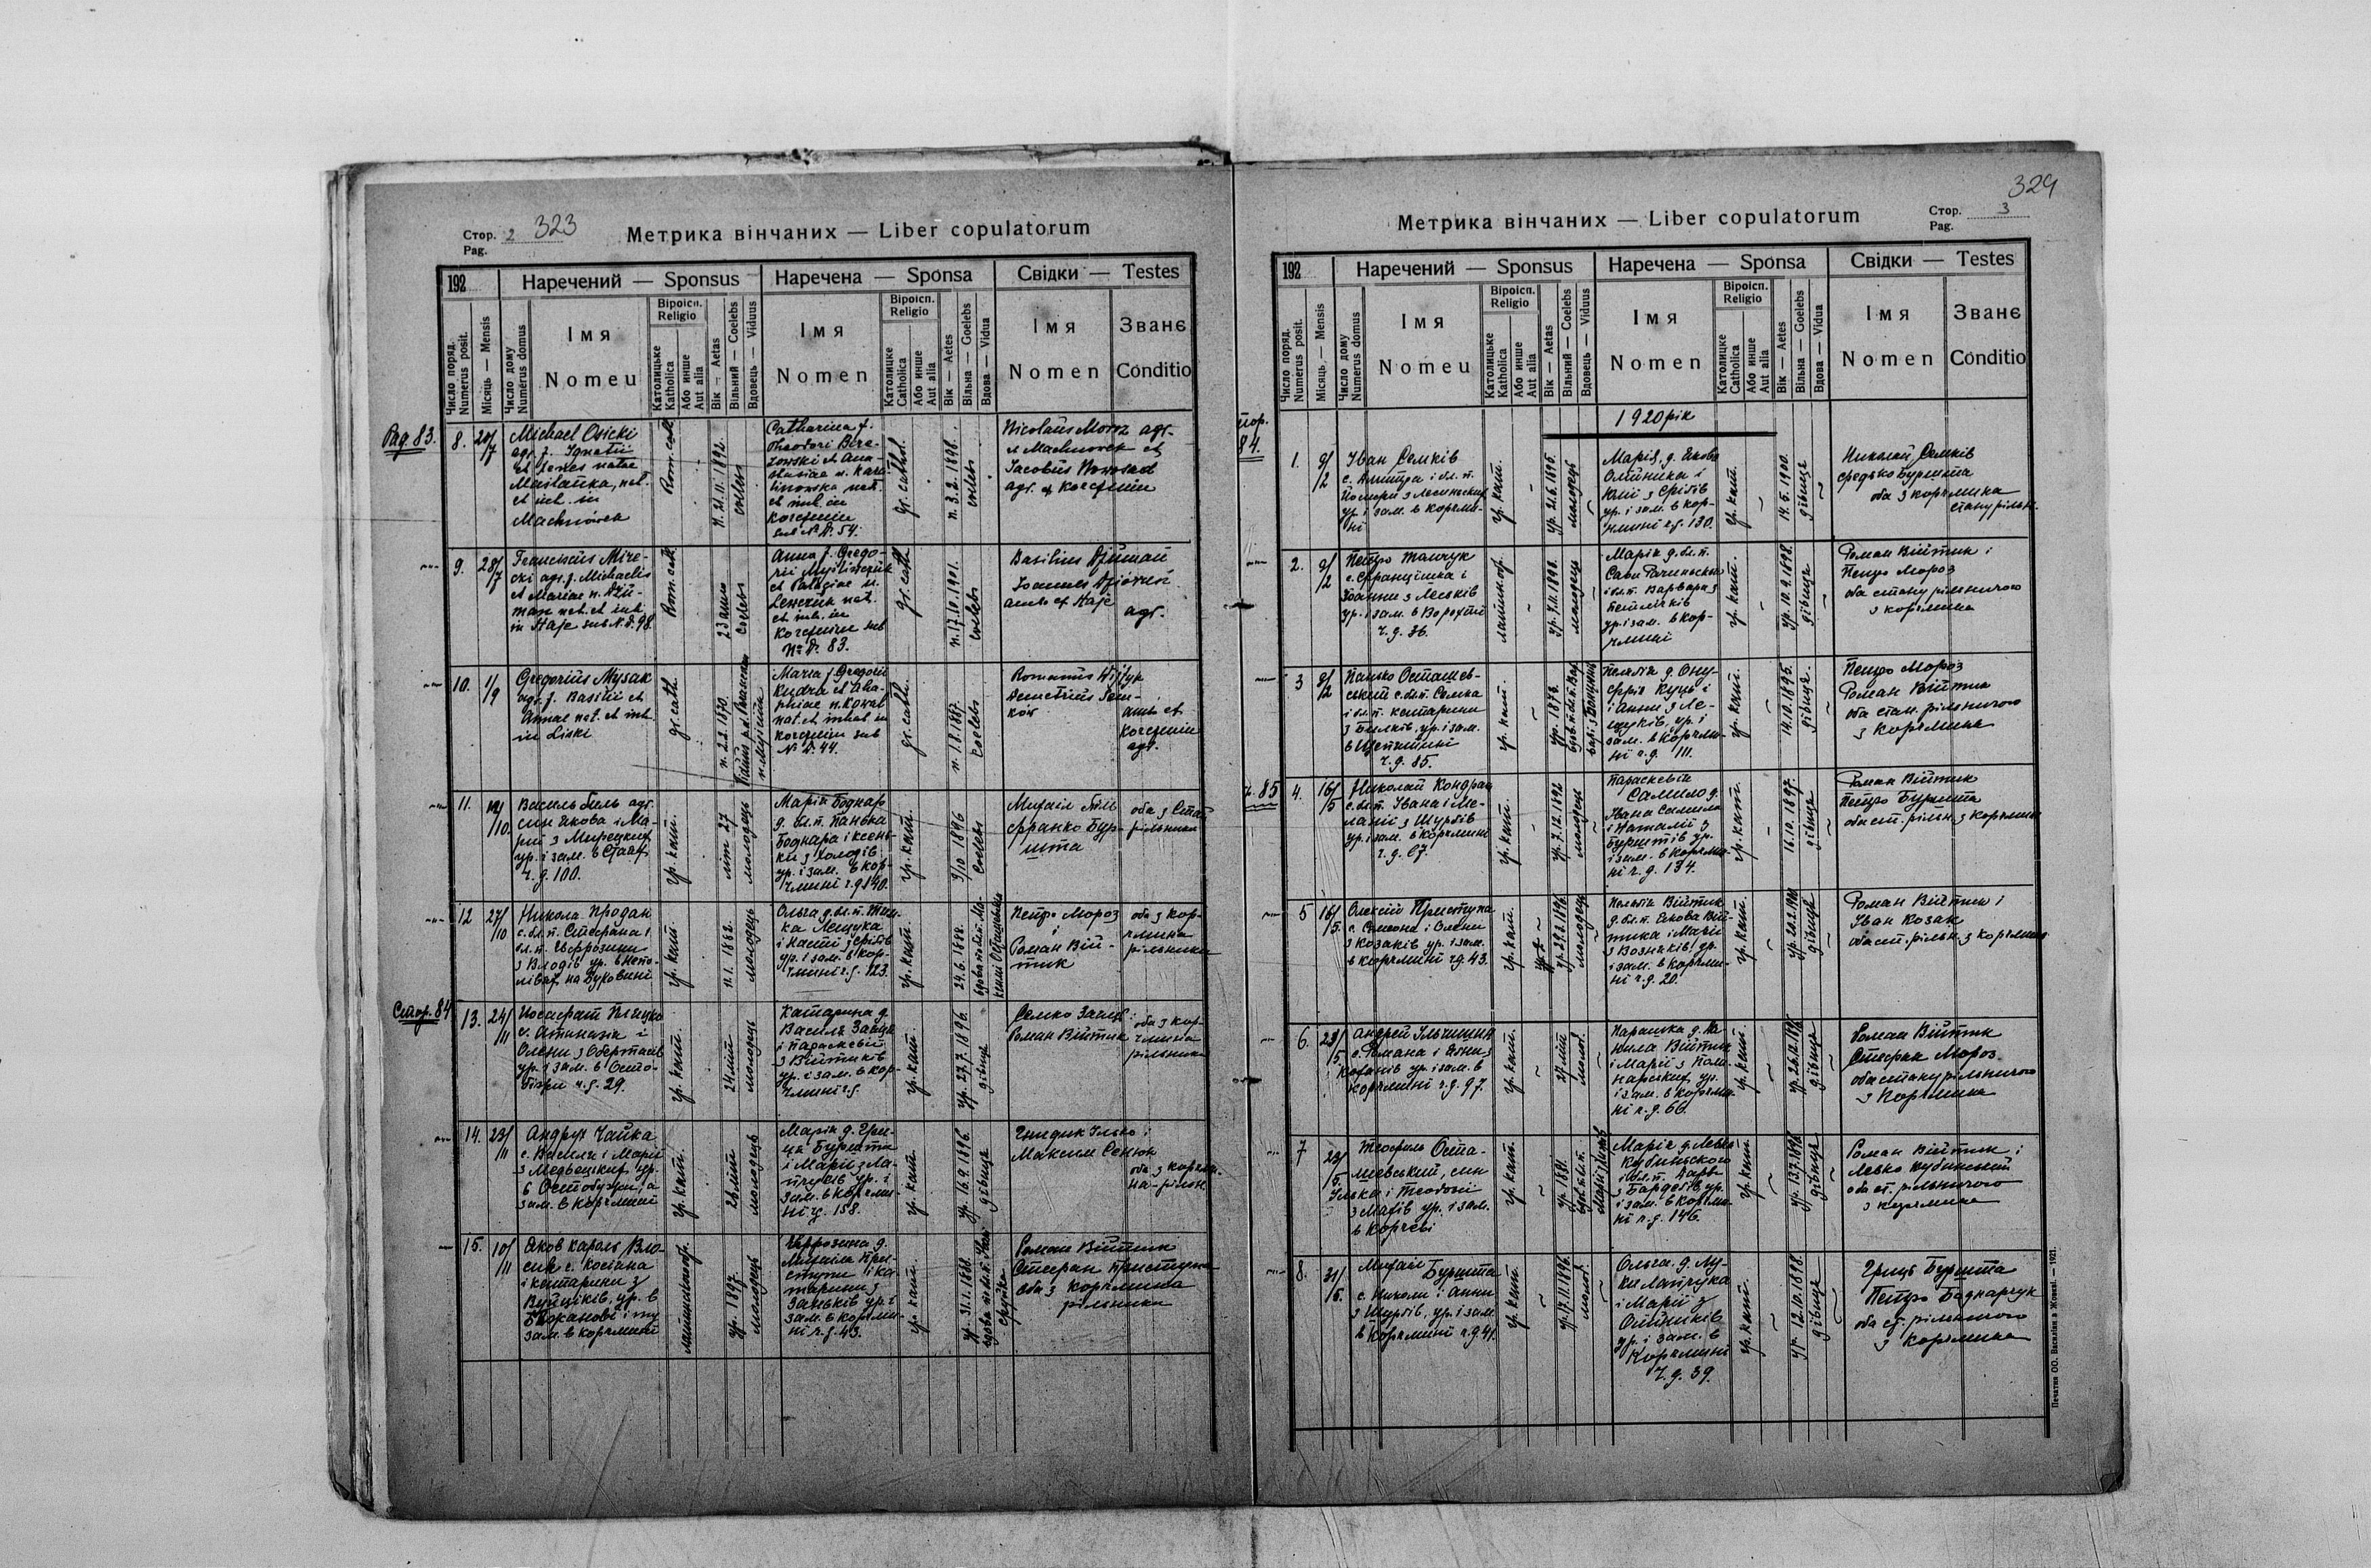 Стор. 2 323
Pag.
Метрика вінчаних — Liber copulatorum
192
Наречений — Sponsus
Наречена — Sponsa
Свідки — Testes
Число поряд. Numerus posit.
Місяць — Mensis
Число дому Numerus domus
Імя
Nomeu
Віроісп.
Religio
Католицьке Katholica
Або инше Aut alia
Вік — Aetas
Вільний — Coelebs
Вдовець — Viduus
Імя
Nomen
Віроісп.
Religio
Католицке Catholica
Або инше Aut alia
Вік — Aetes
Вільна — Goelebs
Вдова — Vidua
Імя
Nomen
Званє
Conditio
Pag 83.
8. 20/7
Michael Osicki
agr. f. Ignatii
et natae
nat.
et inh. in
Machnówek
Rom. cath.
n. 21.11.1892.
coelebs
Catharina f.
Theodori Bere-
zowski et Ana-
stasiae n. Kara-
nat.
et inh. in
Korczmin
sub N. d. 54.
gr. cathol.
n. 3.2.1898.
coelebs
Nicolaus Moroz agr.
et Machnowek et
Jacobus
agr. ex Korczmin
9. 28/7
Franciscus Mire-
cki agr. f. Michaelis
et Mariae n. Dziu-
man nat. et inh.
in Staje sub N. d. 98.
Rom. cath.
23 anno
coelebs
Anna f. Grego-
rii
et Palagiae n.
Leszczuk nat.
et inh. in
Korczmin sub
No d. 83.
gr. cath.
n. 17.10.1901.
coelebs
Basilius Dziuman
Joannes
ambo ex Staje
agr.
10. 1/9
Gregorius Mysak
agr. f. Basilii et
Annae nat. et inh.
in Liski
gr. cath.
n. 2.2.1870.
Maria f. Gregorii
Kudra et Aha-
phiae n. Kowal
nat. et inhab. in
Korczmin sub
N. d. 44.
gr. cath.
n. 1.8.1887.
coelebs
Romanus Wijtyk
Demetrius Sem-
ków
ambo ex
Korczmin
agr.
11.
Василь Біль agr.
син Якова і Ма-
рії з Мирецких
ур. і зам. в Стаях
ч. д. 100.
гр. кат.
літ 27
молодець
Марія Боднар
д. бл. п. Панька
Боднара і Ксень-
ки з Холодів
ур. і зам. в Кор-
чмині ч. д. 140.
гр. кат.
9/10 1896
Coelebs
Михаіл Біль
Франко Бур-
шта
оба з Стай
рільники
12 27/10
Никола Продан
с. бл. п. Стефана і
бл. п. Євфрозини
з Влодів ур. в Непо-
лівах на Буковині
гр. кат.
н. 1. 1882.
молодець
Ольга д. бл. п. Тим-
ка Лещука
і Насті з Єрібів
ур. і зам. в Кор-
чмині ч. д. 123.
гр. кат.
24.6.1888.
Петро Мороз
і
Роман Вій-
тик
оба з Кор-
чмина
рільники
Стор. 84
13. 24/11
Йосафат
с. Атаназія і
Олени з Обертасів
ур. і зам. в Осто-
бужи ч. д. 29.
гр. кат.
24 літ
молодець
Катарина д.
Василя Заяця
і Параскевії
з Війтиків
ур. і зам. в Кор-
чмині ч. д.
гр. кат.
ур. 27.7.1896.
дівиця
Семко Заяць
Роман Війтик
оба з Кор-
чмина
рільники
14. 23/11
Андрух Чайка
с. Василя і Марії
з Медвецких, ур.
в Остобужи, а
зам. в Корчмині
гр. кат.
26 літ
молодець
Марія д. Гри-
ця Буршта
і Марії з Ла-
пчуків ур. і
зам. в Корчми-
ні ч. 158.
гр. кат.
ур. 16.9.1896.
дівиця
Гнидик Ілько і
Максим Сенюк
оба з Корчми-
на - рільн.
15. 10/11
Яков Кароль Вло-
с. Косьмана
і Катарини з
Вуйціків, ур. в
і ту
зам. в Корчмині
латинськ. обр.
ур. 1897.
молодець
Євфрозина д.
Михаіла При-
ступи і Ка-
тарини з
Заньків ур. і
зам. в Корчми-
ні ч. д. 43.
гр. кат.
ур. 31.1.1888.
Роман Війтик
Стефан Приступа
оба з Корчмина
рільники
324
Стор. 3
Pag.
Метрика вінчаних — Liber copulatorum
192
Наречений — Sponsus
Наречена — Sponsa
Свідки — Testes
Число поряд. Numerus posit.
Місяць — Mensis
Число дому Numerus domus
Імя
Nomeu
Віроісп.
Religio
Католицьке Katholica
Або инше Aut alia
Вік — Aetas
Вільний — Coelebs
Вдовець — Viduus
Імя
Nomen
Віроісп.
Religio
Католицке Catholica
Або инше Aut alia
Вік — Aetes
Вільна — Goelebs
Вдова — Vidua
Імя
Nomen
Званє
Conditio
1920 рік
стор.
84.
1. 9/2
Іван Семків
с. Дмитра і бл. п.
ур. і зам. в Корчми-
ні
гр. кат.
ур. 21.6.1895.
молодець
Марія, д. Якова
Олійника і
Юлії з Єрібів
ур. і зам. в Кор-
чмині ч. д. 130.
гр. кат.
14.5.1900.
дівиця
Николай Семків
Федько Буршта
оба з Корчмина
стану рільн.
2. 9/2
Петро Томчук
с. Францішка і
Йоанни з Леськів
ур. і зам. в Ворохті
ч. д. 36.
латин. обр.
ур. 7.11.1898.
молодець
Марія д. бл. п.
Сави
і бл. п. Варвари з
ур. і зам. в Кор-
чмині
гр. кат.
ур. 10.9.1898.
дівиця
Роман Війтик і
Петро Мороз
оба стану рільничого
з Корчмина
3 9/2
Панько Осташев-
ський с. бл. п. Семка
і бл. п. Катарини
з Бильків, ур. і зам.
в Щепятині
ч. д. 85.
гр. кат.
ур. 1878.
Пелагія д. Ону-
фрія Куць і
Анни з Ле-
щуків, ур. і
зам. в Корчми-
ні ч. д. 111.
гр. кат.
14.10.1895.
дівиця
Петро Мороз
Роман Війтик
оба стан. рільничого
з Корчмина
ч. 85
4. 16/5
Николай Кондрат
с. бл. п. Івана і Ме-
ланії з Щурбів
ур. і зам. в Корчмині
ч. д. 67.
гр. кат.
ур. 7.12.1892
молодець
Параскевія
Самило д.
Івана Самила
і Наталії з
Бурштів ур.
і зам. в Корчми-
ні ч. д. 134.
гр. кат.
16.10.1897.
дівиця
Роман Війтик
Петро Буршта
оба ст. рільн. з Корчмина
5 16/5.
Олексій Приступа
с. Семона і Олени
з Козаків ур. і зам.
в Корчмині ч. д. 43.
гр. кат.
молодець
Пелагія Війтик
д. бл. п. Якова Вій-
тика і Марії
з Возняків, ур.
і зам. в Корчми-
ні ч. д. 20.
гр. кат.
дівиця
Роман Війтик і
Іван Козак
оба ст. рільн. з Корчмина
6. 23/5
Андрей Ільчишин
с. Романа і Анни з
ур. і зам. в
Корчмині ч. д. 97.
гр. кат.
27 літ
молод.
Парашка д. Да-
нила Війтик
і Марії з Пом-
нарських ур.
і зам. в Корчми-
ні ч. д. 66.
гр. кат.
ур. 26.12.1896
дівиця
Роман Війтик
Стефан Мороз
оба стану рільничого
з Корчмина
7 23/5.
Теофиль Оста-
шевський, син
Ілька і Теодозії
з Мазів ур. і зам.
в Корчеві
гр. кат.
ур. 1881.
Марія д. Левка
Кубинського
і бл. п. Варв.
з Бардегів, ур.
і зам. в Корчми-
ні ч. д. 146.
гр. кат.
ур. 13.7.1898
дівиця
Роман Війтик і
Левко Кубинський
оба ст. рільничого
з Корчмина
8. 31/5.
Михаіл
Буршта
с. Николи і Анни
з Щурбів, ур. і зам.
в Корчмині ч. д. 41.
гр. кат.
ур. 17.11.1896.
молод.
Ольга д. Лу-
ки Лапчука
і Марії з
Олійників
ур. і зам. в
Корчмині
ч. д. 39.
гр. кат.
ур. 12.10.1898.
дівиця
Гриць Буршта
Петро Боднарчук
оба ст. рільничого
з Корчмина
Печатня ОО. Василіян в Жовкві. — 1921.